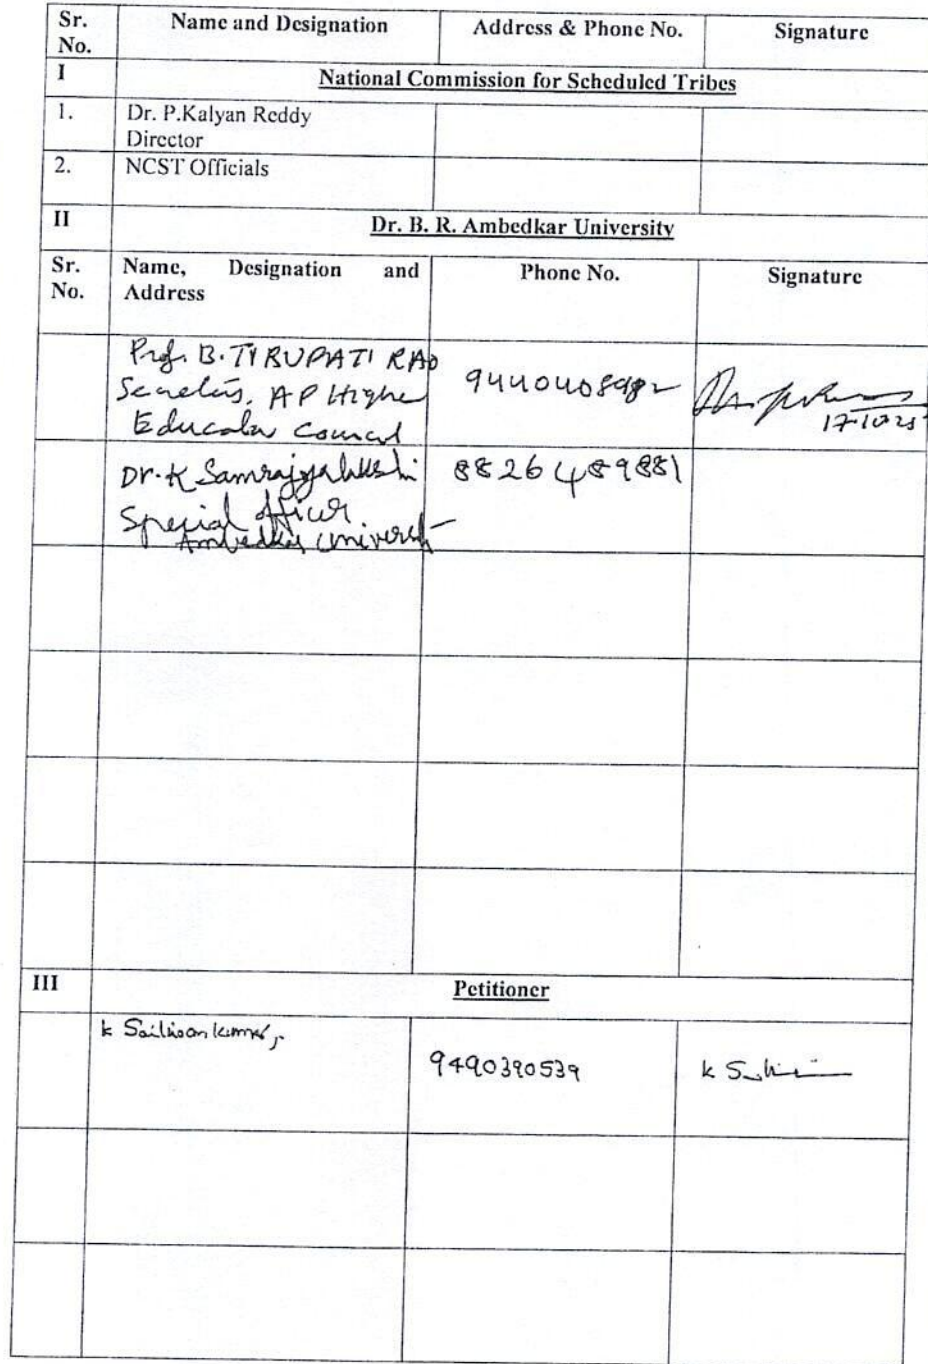 Sr. No. Name and Designation Address & Phone No. Signature
I National Commission for Scheduled Tribes
1. Dr. P.Kalyan Reddy
Director
2. NCST Officials
II Dr. B. R. Ambedkar University
Sr. No. Name, Designation and Address Phone No. Signature
Prof. B. TIRUPATI RAO
AP Higher
Council
17-10-25
Dr. K Samrajyalakshmi 8826489881
Special Officer
Ambedkar University
III Petitioner
9490390539